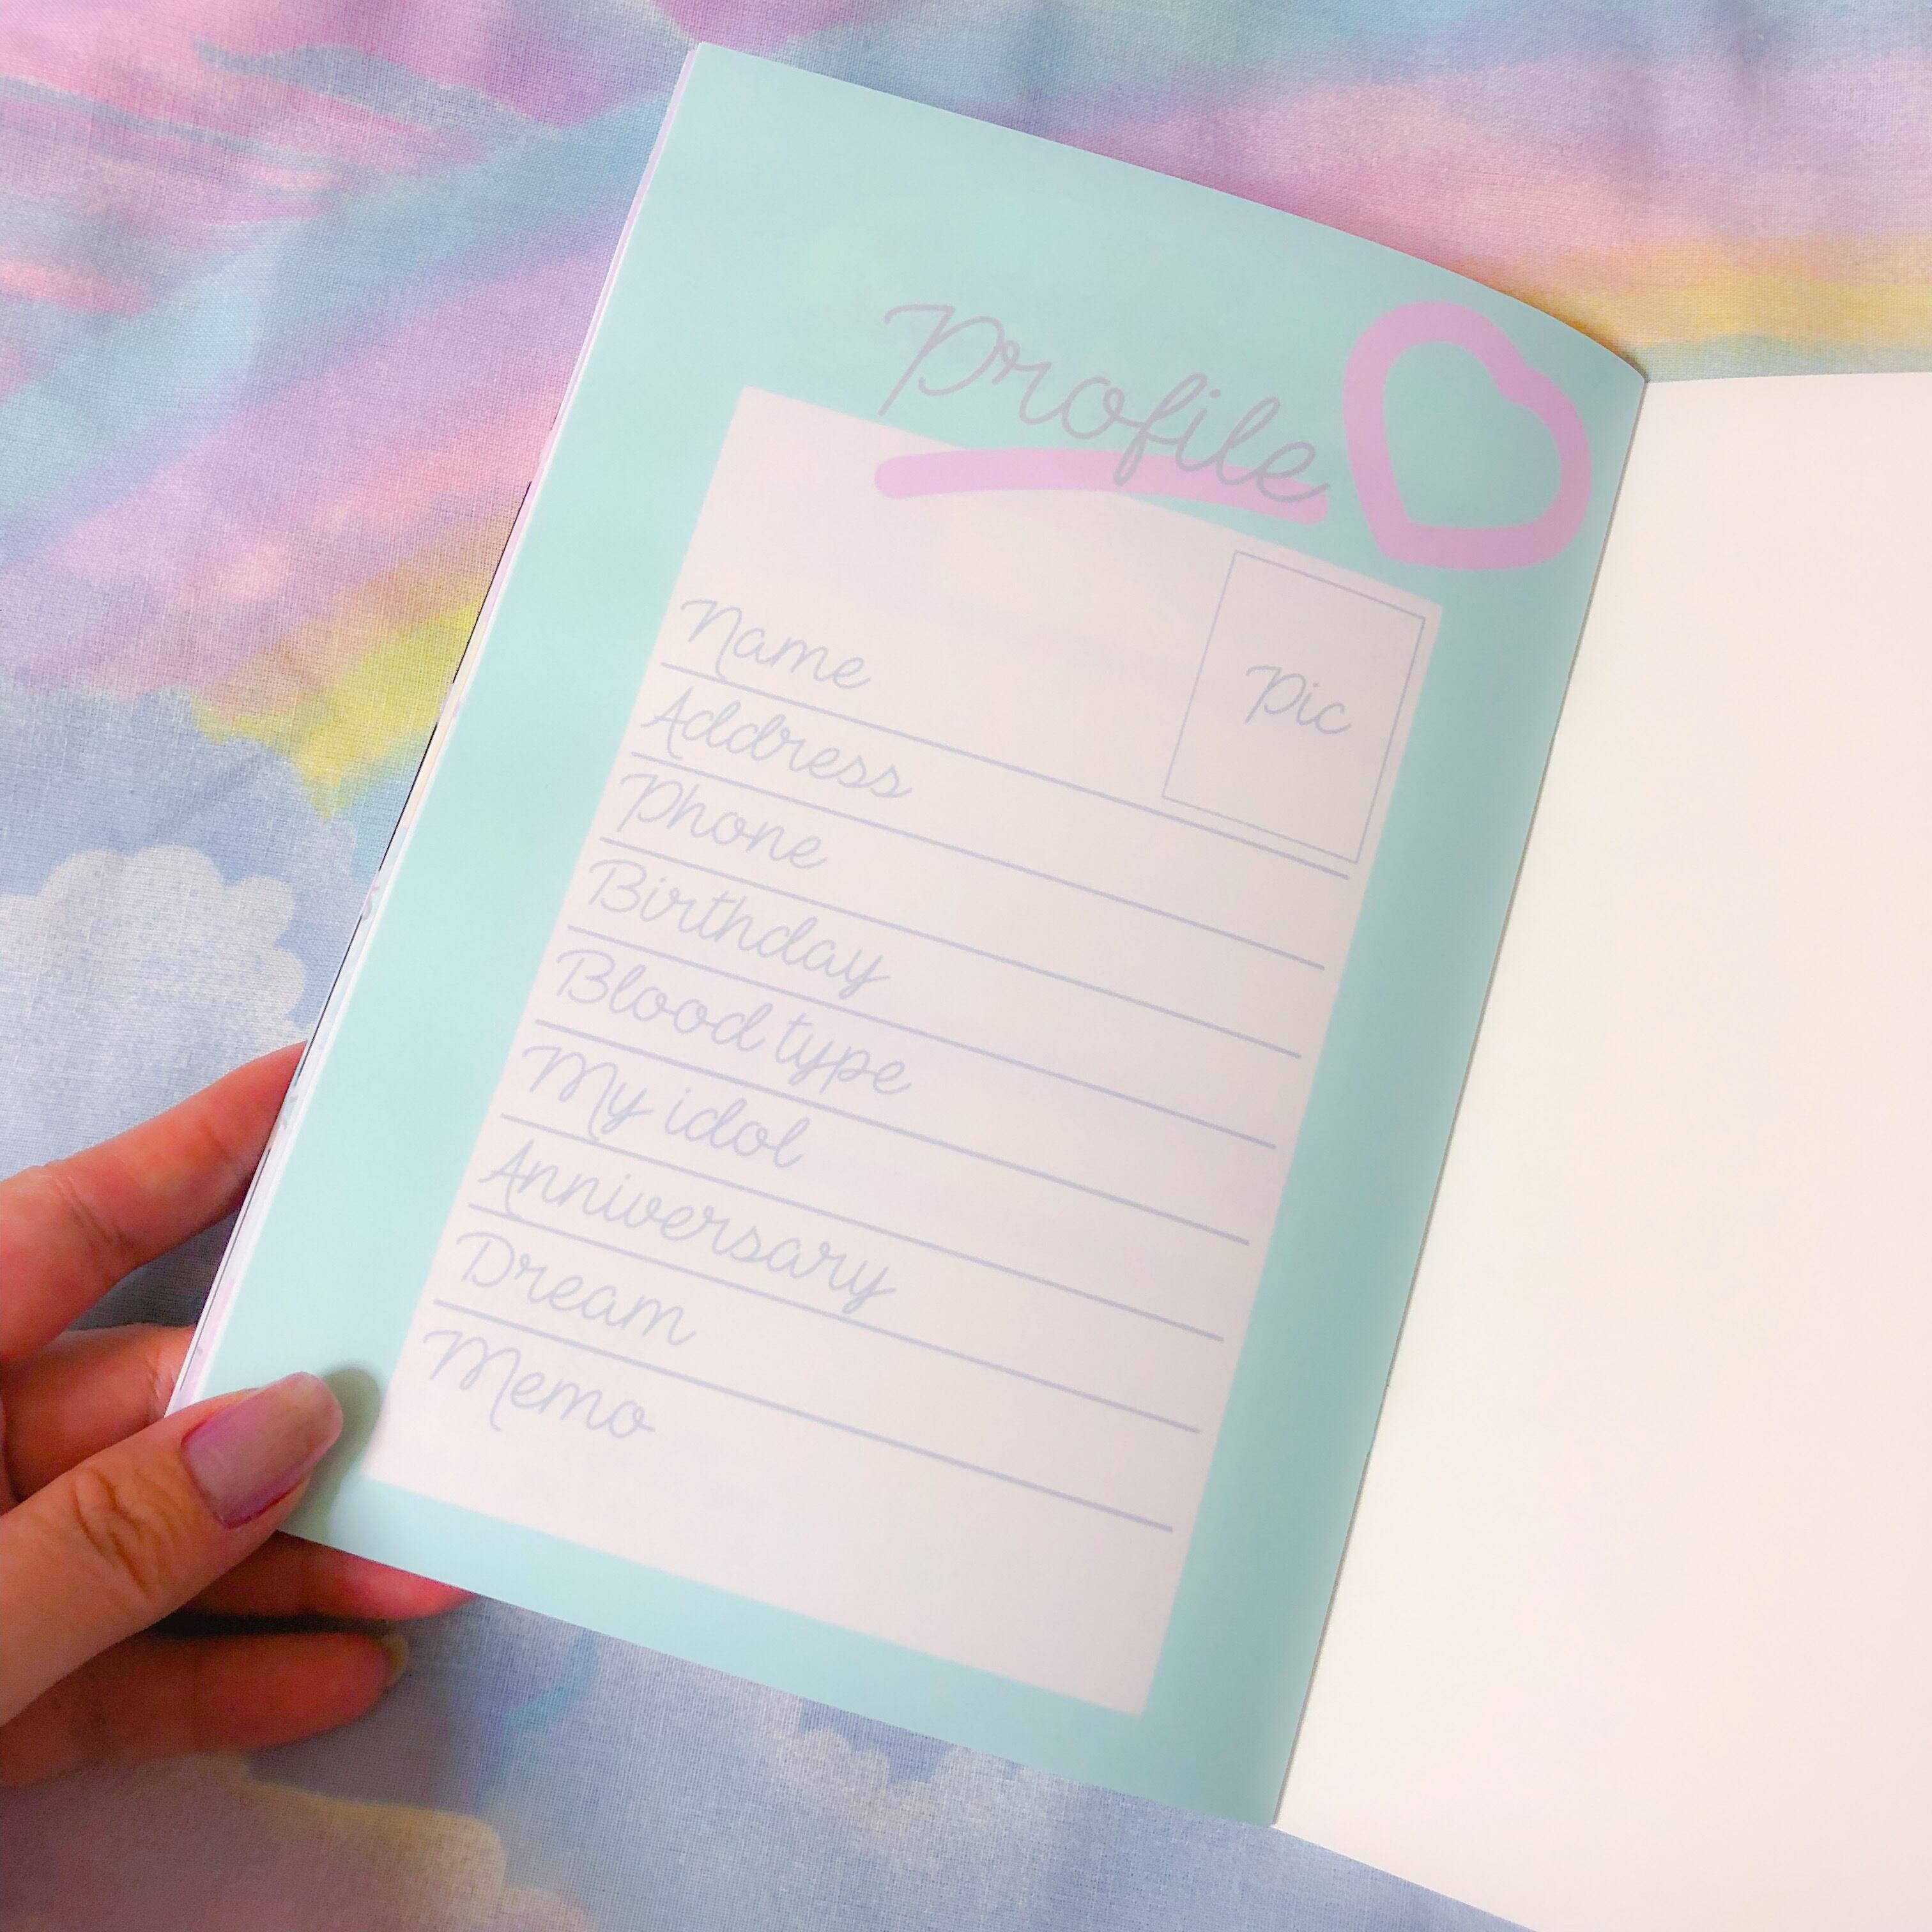 Profile
Pic
Name
Address
Phone
Birthday
Blood type
My idol
Anniversary
Dream
Memo